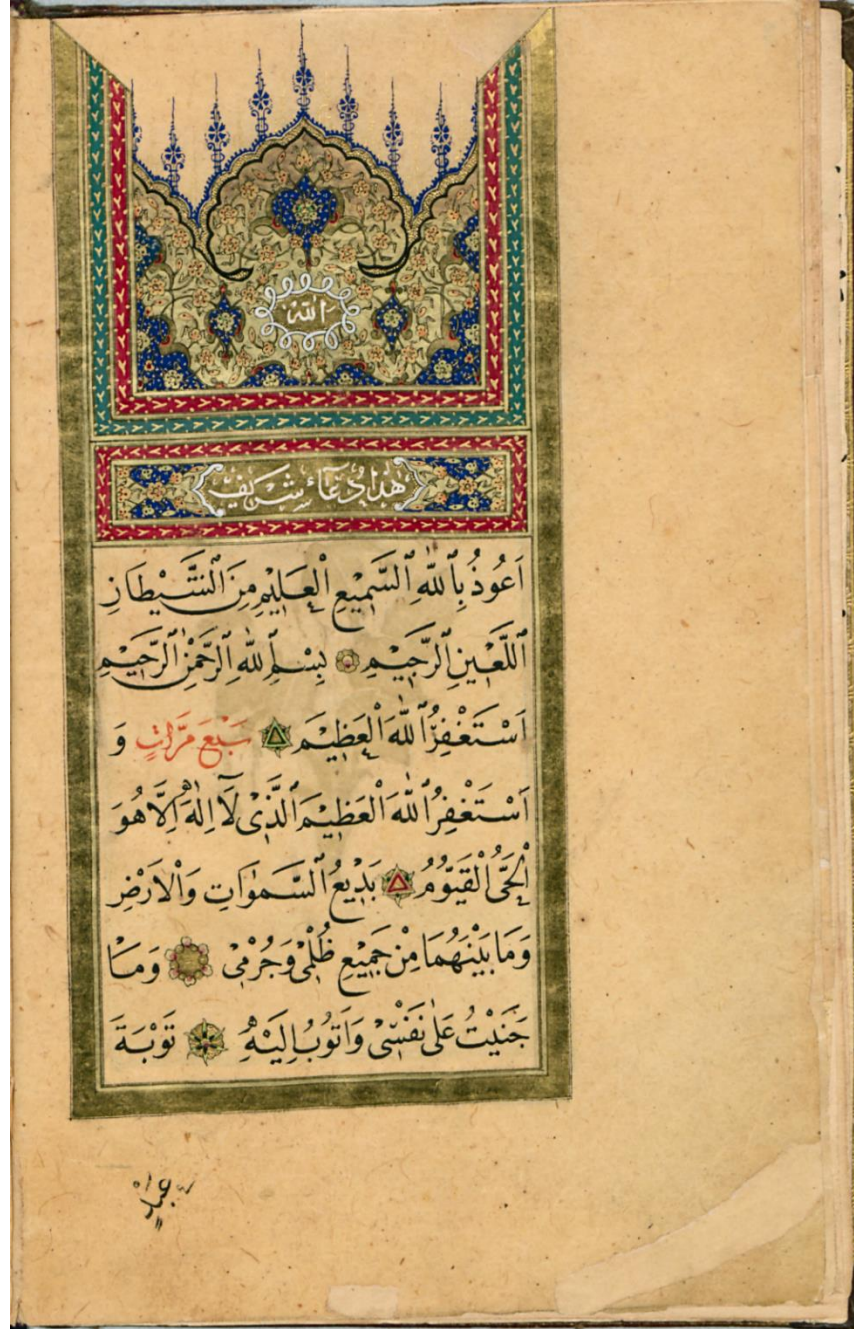 الله
هٰذَا دُعَاۤءِ شَرِيفْ
اَعُوذُ بِاللّٰهِ السَّمِيعِ الْعَلِيمِ مِنَ الشَّيْطَانِ
اللَّعِينِ الرَّجِيمِ بِسْمِ اللّٰهِ الرَّحْمٰنِ الرَّحِيمِ
اَسْتَغْفِرُ اللّٰهَ الْعَظِيمَ سَبْعَ مَرَّاتٍ وَ
اَسْتَغْفِرُ اللّٰهَ الْعَظِيمَ الَّذِى لَاۤ اِلٰهَ اِلَّا هُوَ
الْحَىُّ الْقَيُّومُ بَدِيعُ السَّمٰوَاتِ وَالْاَرْضِ
وَمَا بَيْنَهُمَا مِنْ جَمِيعِ ظُلْمِى وَجُرْمِى وَمَا
جَنَيْتُ عَلٰى نَفْسِى وَاَتُوبُ اِلَيْهِ تَوْبَةَ
عَبْدٍ